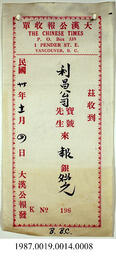 大漢公報收單
THE CHINESE TIMES
P. O. Box
1 PENDER ST. E.
VANCOUVER, B. C.
茲收到
利昌公司寶號先生來報銀
民國卅年十月日大漢公報發
K No 198
B. BC.
1987.0019.0014.0008